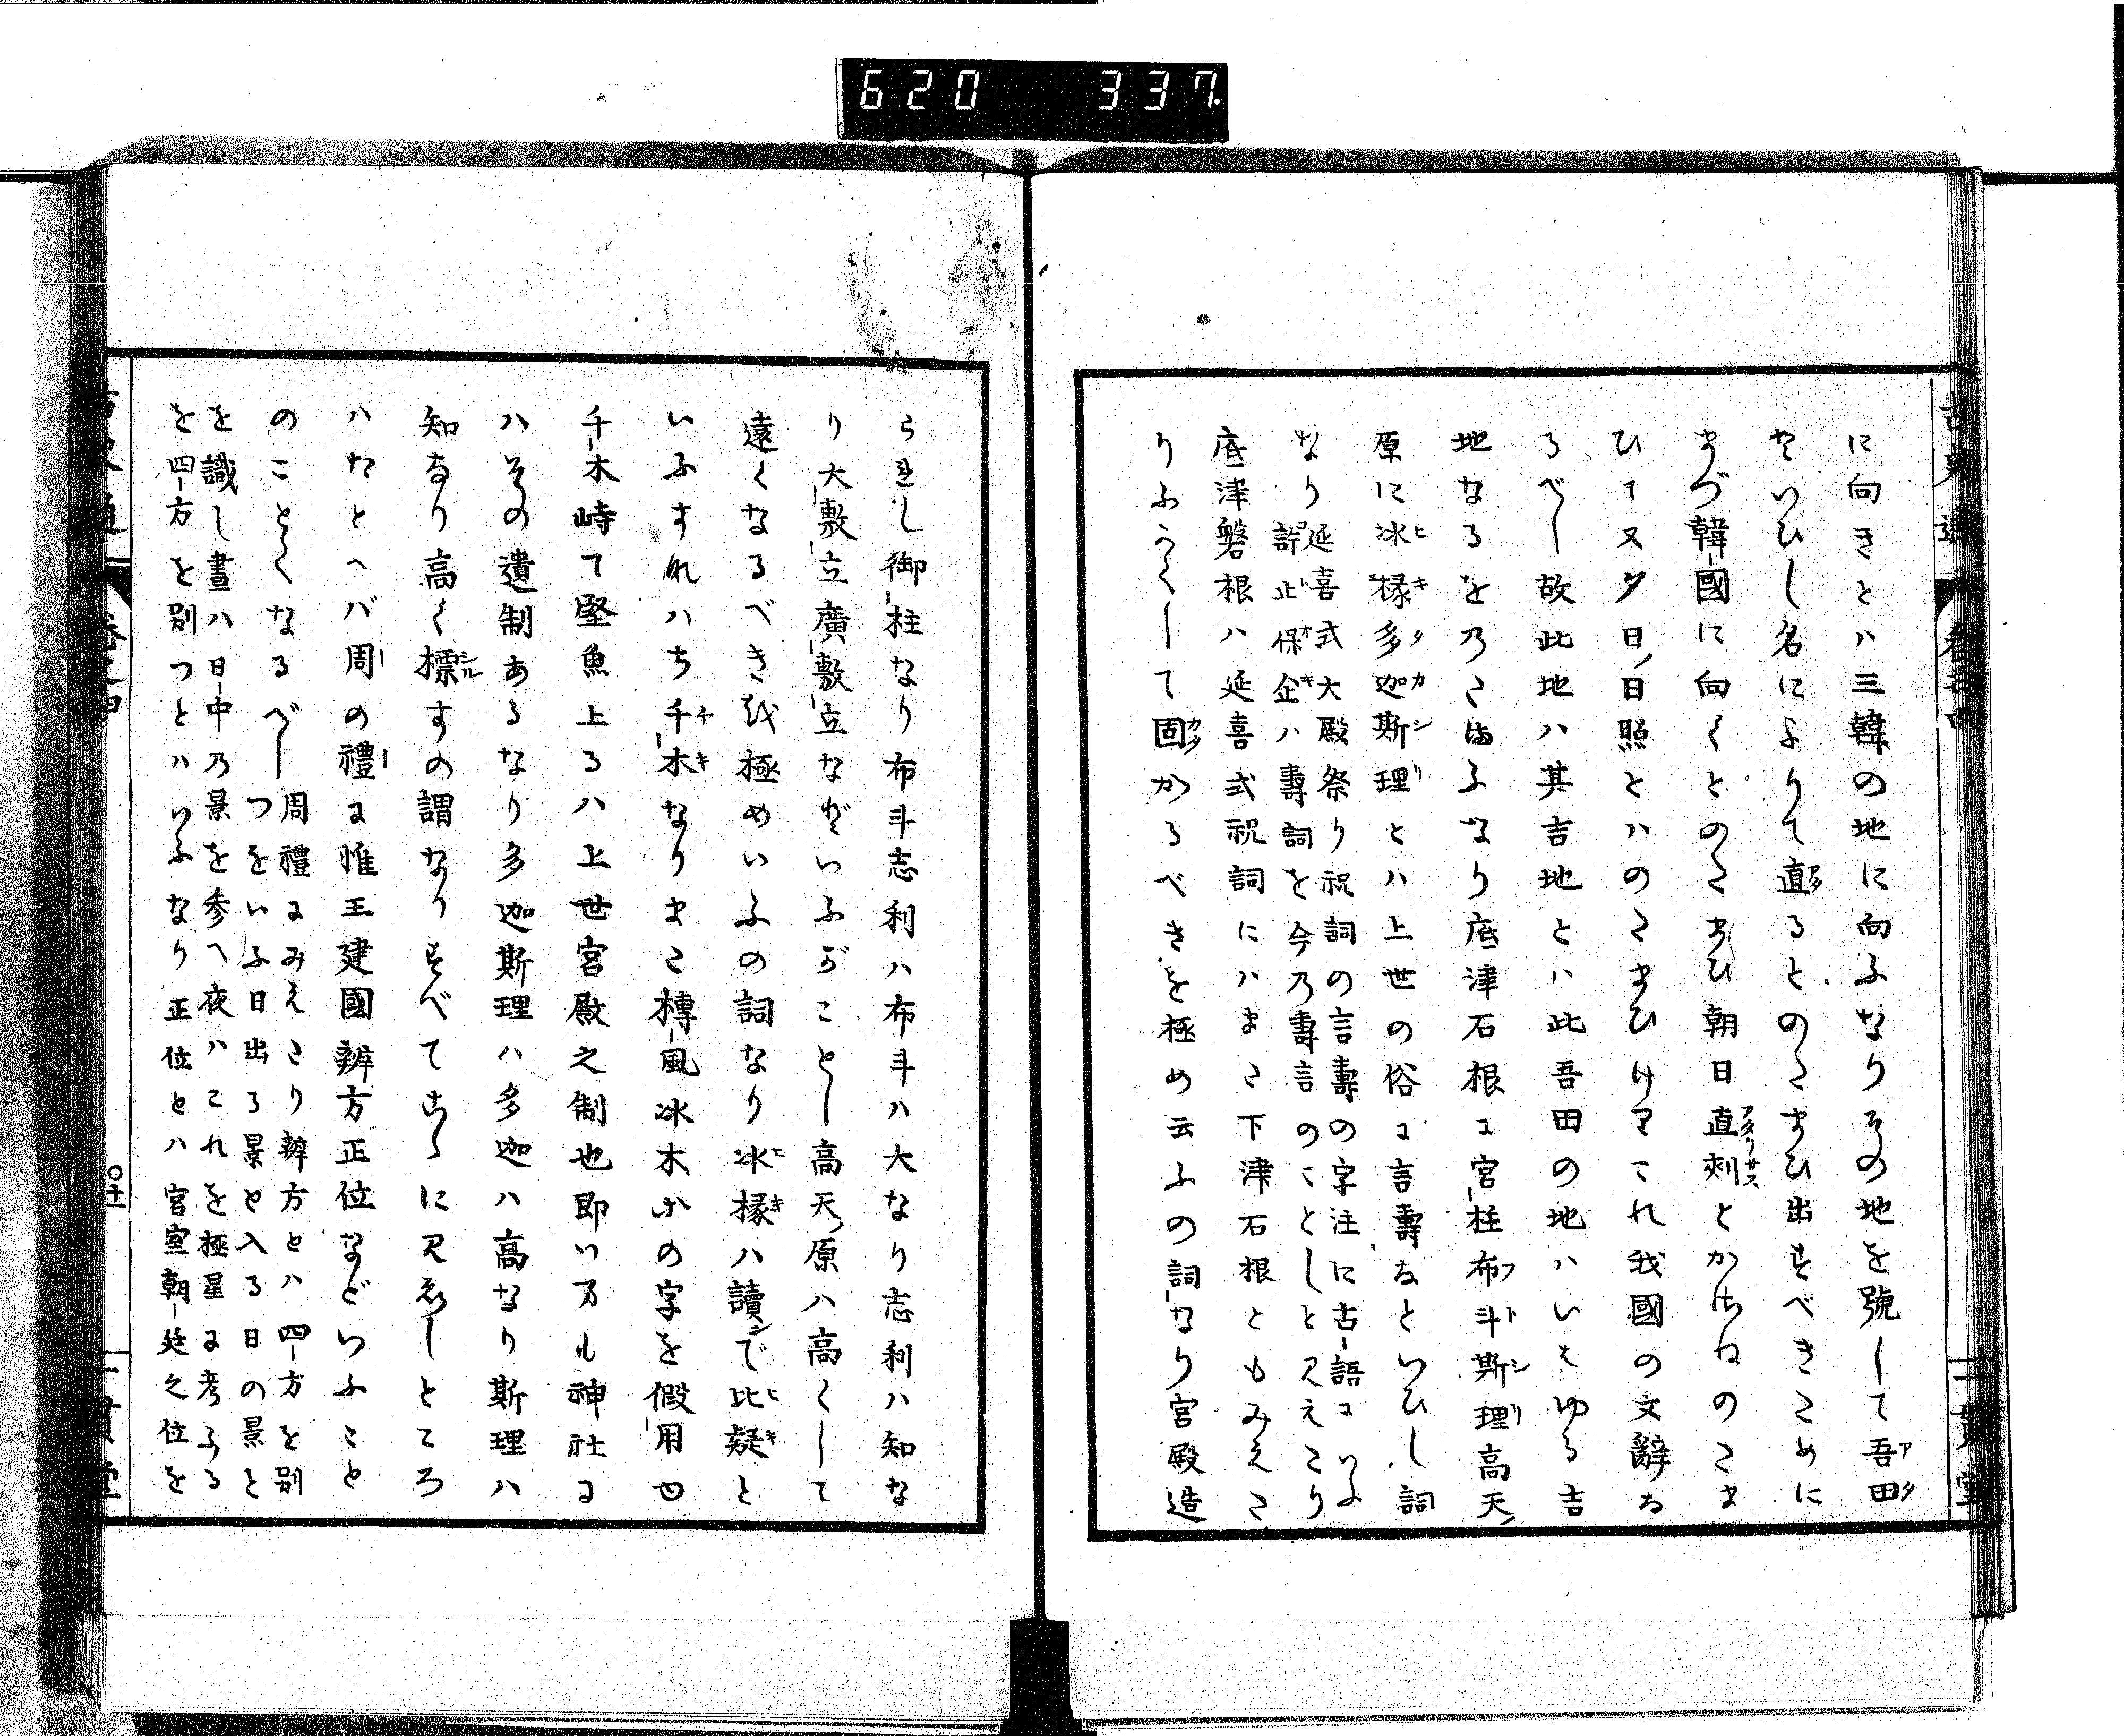 620 337
に向きとハ三韓の地に向ふなりその地を號して吾田
といひし名によりて直るとのたまひ出すべきために
まづ韓國に向くとのたまひ朝日直刺とかさねのたま
ひて又夕日ノ日照とハのたまひけりこれ我國の文辭な
るべし故此地ハ其吉地とハ此吾田の地ハいはゆる吉
地なるをのたまふなり底津石根に宮柱布斗斯理高天ノ
原に冰椽多迦斯理とハ上世の俗に言壽なといひし詞
なり
延喜式大殿祭り祝詞の言壽の字注に古語にいふ
許止保企ハ壽詞を今乃壽言のことしと見えたり
底津磐根ハ延喜式祝詞にハまた下津石根ともみえた
りふかくして固かるべきを極め云ふの詞なり宮殿造
られし御柱なり布斗志利ハ布斗ハ大なり志利ハ知な
り大敷立廣敷立などいふがことし高天ノ原ハ高くして
遠くなるべきを極めいふの詞なり冰椽ハ讀で比疑と
いふすなハち千木なりまた榑風冰木の字を假用
千木峙て堅魚上るハ上世宮殿之制也即いまも神社に
ハその遺制あるなり多迦斯理ハ多迦ハ高なり斯理ハ
知なり高く標すの謂なりすべてこゝに見えしところ
ハたとへバ周の禮に惟王建國辨方正位などいふこと
のことくなるべし
周禮にみえたり辨方とハ四方を別
つをいふ日出る景と入る日の景と
を識し晝ハ日中乃景を參へ夜ハこれを極星に考ふる
を四方を別つとハいふなり正位とハ宮室朝廷之位を